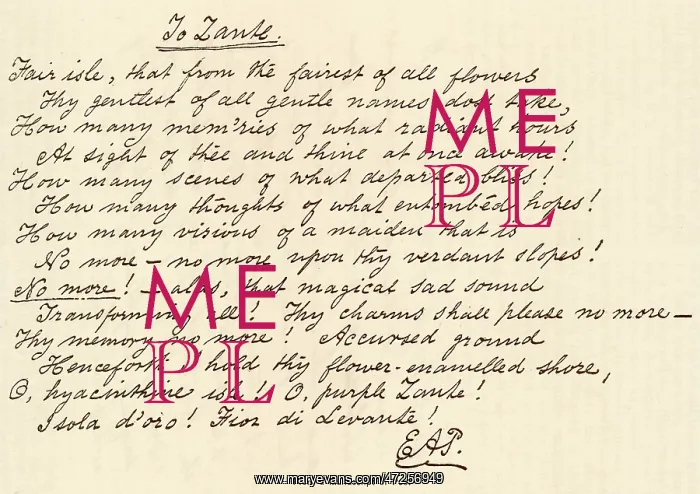 To Zante.
Fair isle, that from the fairest of all flowers
Thy gentlest of all gentle names dost take,
How many mem'ries of what radiant hours
At sight of thee and thine at once awake!
How many scenes of what departed bliss!
How many thoughts of what entombéd hopes!
How many visions of a maiden that is
No more — no more upon thy verdant slopes!
No more! — alas, that magical sad sound
Transforming all! Thy charms shall please no more —
Thy memory no more! Accursed ground
Henceforth I hold thy flower-enamelled shore,
O, hyacinthine isle! O, purple Zante!
Isola d'oro! Fior di Levante!
EAP.
ME
PL
ME
PL
www.maryevans.com/47256949